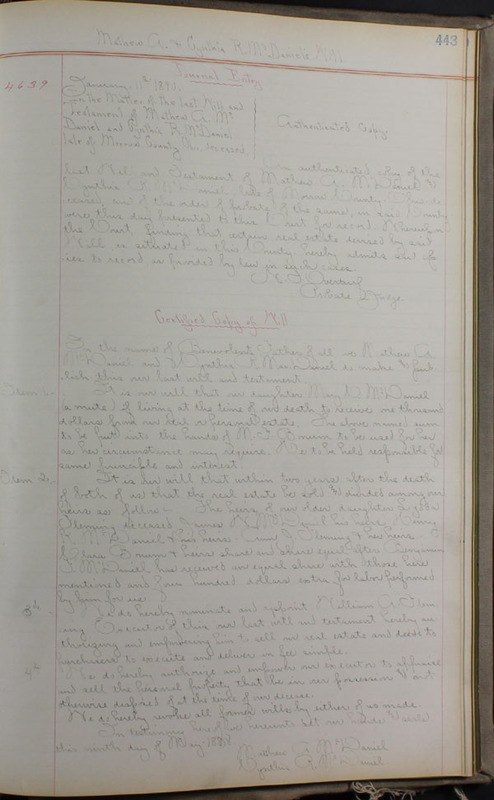 443
Mathew A. & Cynthia R. McDaniel's Will
4639
Journal Entry
January 11th 1890.
In the Matter of the last Will and
Testament of Mathew A. Mc
Daniel and Cynthia R. McDaniel
late of County O. deceased.
Authenticated Copy
authenticated copy of the
last Will and Testament of Mathew A. McDaniel &
Cynthia R. McDaniel, late of County, Ohio, de-
ceased, and of the order of probate of the same, in said County
were this day presented to this Court for record. Whereupon
the Court finding that certain real estate devised by said
Will is situated in this County hereby admits said
to record as provided by law in such cases.
Probate Judge.
Certified Copy of Will
In the name of Benevolent Father of all, we Mathew A.
McDaniel and Cynthia R. McDaniel do make & pub-
lish this our last will and testament.
Item 1. It is our will that our daughter Mary McDaniel
(a mute) if living at the time of our death to receive one thousand
dollars from our real or personal estate. The above named sum
to be put into the hands of to be used for her
as her circumstance may require. He to be held responsible for
same principle and interest.
Item 2. It is our will that within two years after the death
of both of us that the real estate be sold & divided among our
heirs as follow – The heirs of our older daughter
Fleming deceased, James McDaniel his heirs,
McDaniel & his heirs, Fleming & her heirs,
& heirs share and share equal after Benjamin
F. McDaniel has received an equal share with those here
mentioned and four hundred dollars extra for labor performed
by him for us.
3d. We do hereby nominate and appoint William A. Flem-
ing Executor of this our last will and testament hereby au-
thorizing and empowering him to sell our real estate and deeds to
purchasers to execute and deliver in fee simple.
4th We do hereby authorize and empower our executor to appraise
and sell the personal property that be in our possession & not
otherwise disposed of at the time of our decease.
We do hereby revoke all former wills by either of us made.
In testimony hereof we hereunto set our hands & seals
this ninth day of May
Mathew A. McDaniel
Cynthia R. McDaniel